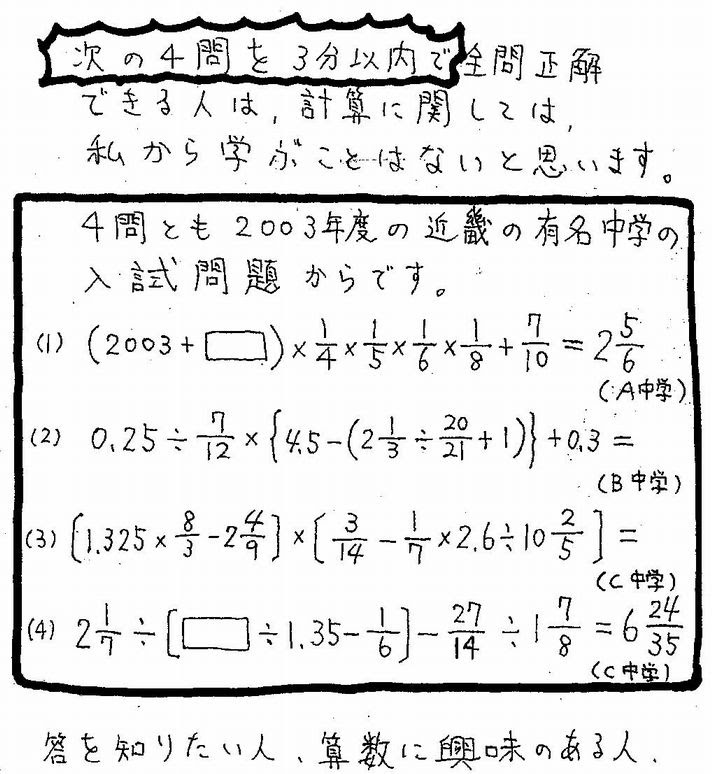 次の4問を3分以内で全問正解
できる人は,計算に関しては,
私から学ぶことはないと思います。
4問とも2003年度の近畿の有名中学の
入試問題からです。
(1) (2003+□)×1/4×1/5×1/6×1/8+7/10=2 5/6
(A中学)
(2) 0.25÷7/12×{4.5-(2 1/3÷20/21+1)}+0.3=
(B中学)
(3) [1.325×8/3-2 4/9]×[3/14-1/7×2.6÷10 2/5]=
(C中学)
(4) 2 1/7÷[□÷1.35-1/6]-27/14÷1 7/8=6 24/35
(C中学)
答を知りたい人、算数に興味のある人、